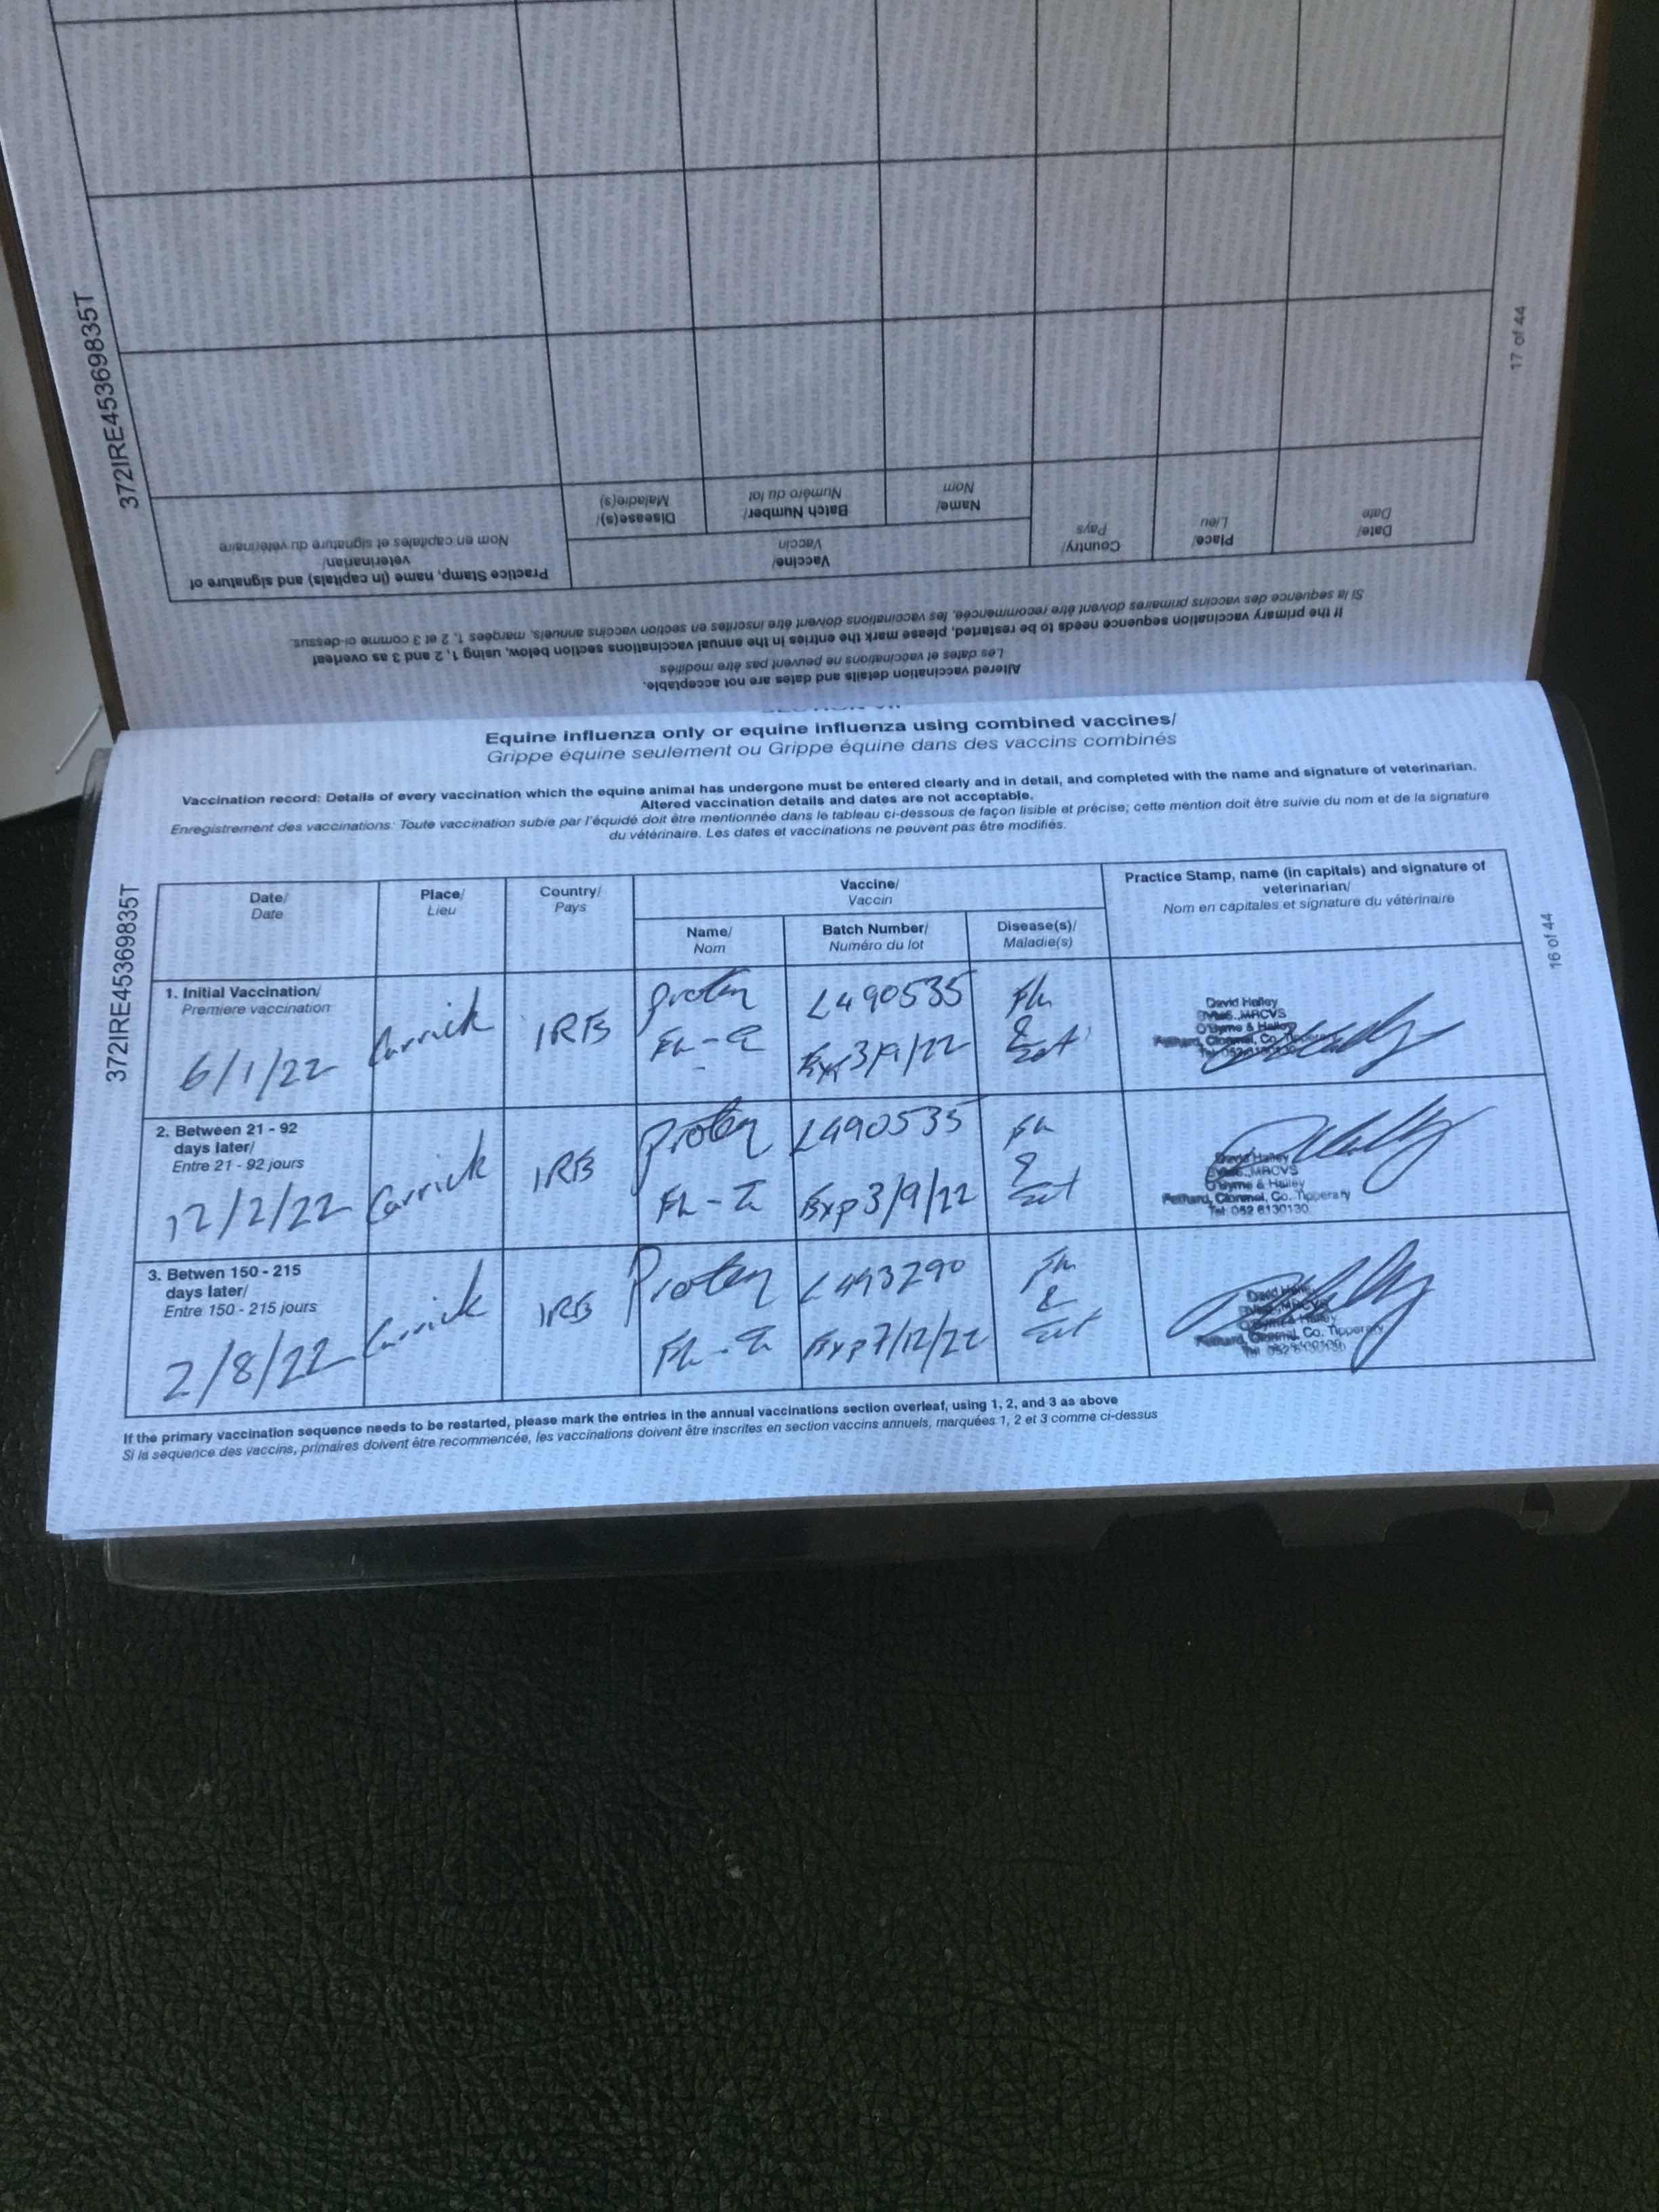 372IRE45369835T
17 of 44
Practice Stamp, name (in capitals) and signature of
veterinarian/
Nom en capitales et signature du vétérinaire
Vaccine/
Vaccin
Disease(s)/
Maladie(s)
Batch Number/
Numéro du lot
Name/
Nom
Country/
Pays
Place/
Lieu
Date/
Date
If the primary vaccination sequence needs to be restarted, please mark the entries in the annual vaccinations section below, using 1, 2 and 3 as overleaf
Si la sequence des vaccins primaires doivent être recommencée, les vaccinations doivent être inscrites en section vaccins annuels, marqées 1, 2 et 3 comme ci-dessus.
Altered vaccination details and dates are not acceptable.
Les dates et vaccinations ne peuvent pas être modifiés
Equine influenza only or equine influenza using combined vaccines/
Grippe équine seulement ou Grippe équine dans des vaccins combinés
Vaccination record: Details of every vaccination which the equine animal has undergone must be entered clearly and in detail, and completed with the name and signature of veterinarian.
Altered vaccination details and dates are not acceptable.
Enregistrement des vaccinations: Toute vaccination subie par l'équidé doit être mentionnée dans le tableau ci-dessous de façon lisible et précise; cette mention doit être suivie du nom et de la signature
du vétérinaire. Les dates et vaccinations ne peuvent pas être modifiés.
372IRE45369835T
16 of 44
Date/
Date
Place/
Lieu
Country/
Pays
Vaccine/
Vaccin
Name/
Nom
Batch Number/
Numéro du lot
Disease(s)/
Maladie(s)
Practice Stamp, name (in capitals) and signature of
veterinarian/
Nom en capitales et signature du vétérinaire
1. Initial Vaccination/
Premiere vaccination
6/1/22
Carrick
IRE
L490535
Exp 3/9/22
Flu
&
Tet
David Halley
DVMS., MRCVS
O'Byrne & Halley
Fethard, Clonmel, Co. Tipperary
Tel: 052 6130130
2. Between 21 - 92
days later/
Entre 21 - 92 jours
12/2/22
Carrick
IRE
L490535
Exp 3/9/22
Flu
&
Tet
David Halley
DVMS., MRCVS
O'Byrne & Halley
Fethard, Clonmel, Co. Tipperary
Tel: 052 6130130
3. Betwen 150 - 215
days later/
Entre 150 - 215 jours
2/8/22
Carrick
IRE
L493290
Exp 7/12/22
Flu
&
Tet
David Halley
DVMS., MRCVS
O'Byrne & Halley
Fethard, Clonmel, Co. Tipperary
Tel: 052 6130130
If the primary vaccination sequence needs to be restarted, please mark the entries in the annual vaccinations section overleaf, using 1, 2, and 3 as above
Si la sequence des vaccins, primaires doivent être recommencée, les vaccinations doivent être inscrites en section vaccins annuels, marquées 1, 2 et 3 comme ci-dessus